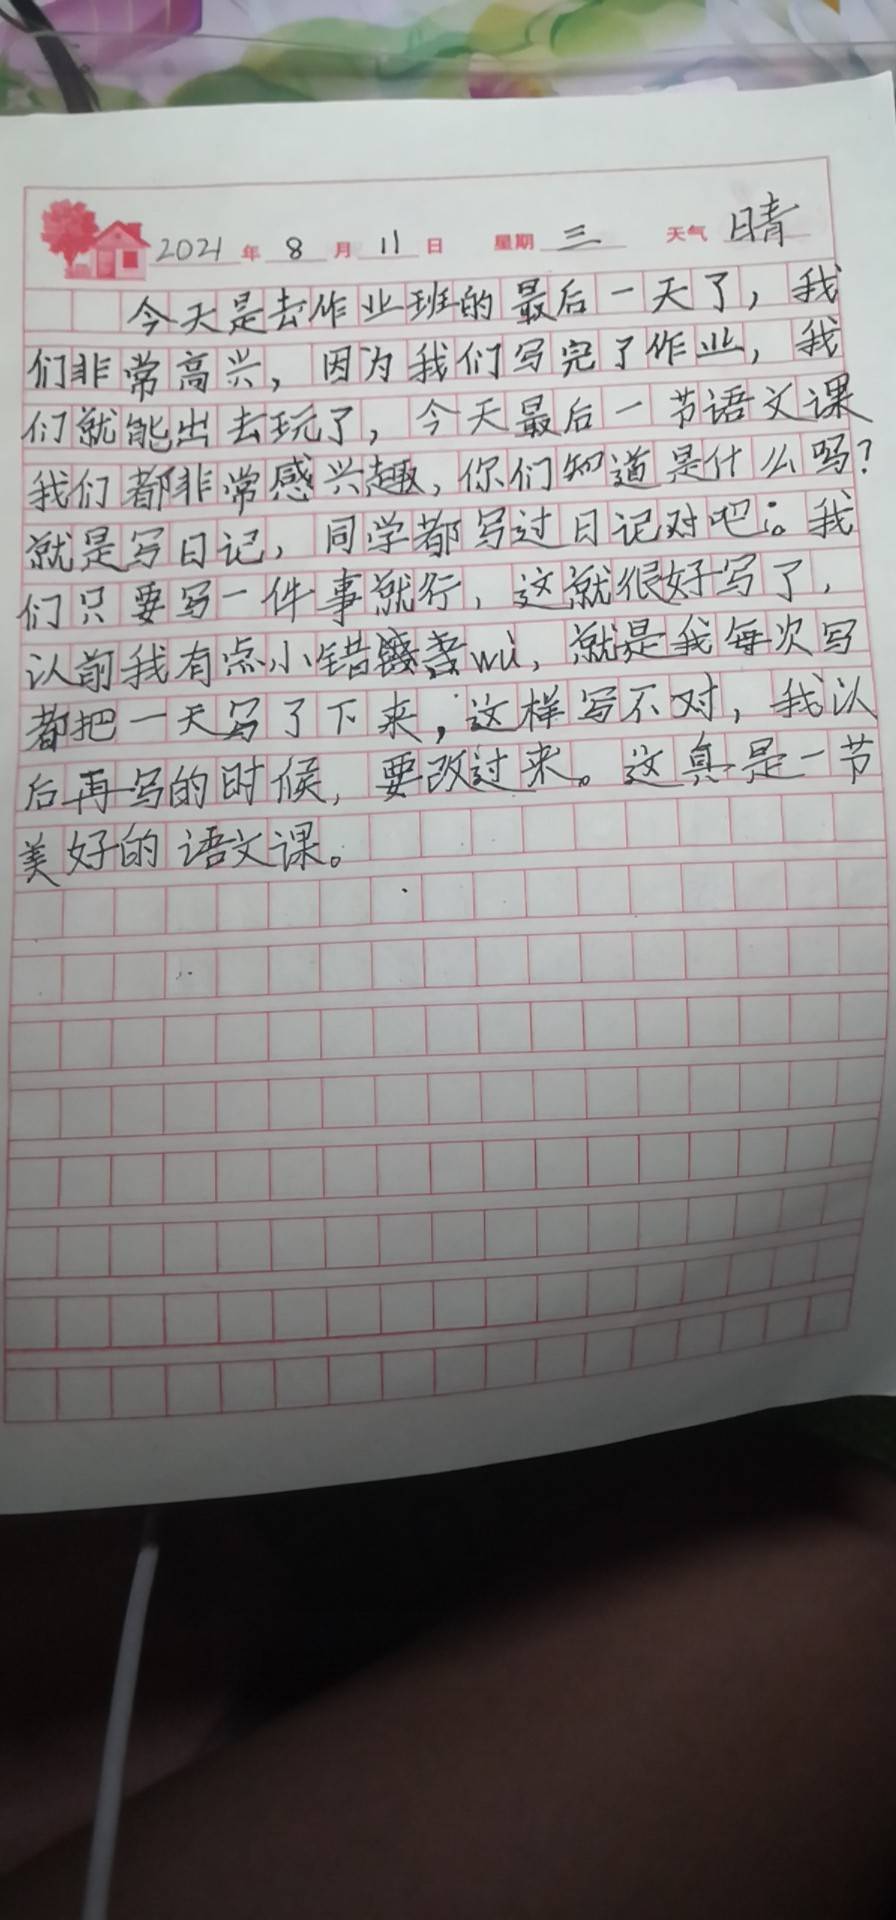 2021年8月11日 星期三 天气晴
今天是去作业班的最后一天了，我
们非常高兴，因为我们写完了作业，我
们就能出去玩了，今天最后一节语文课
我们都非常感兴趣，你们知道是什么吗？
就是写日记，同学都写过日记对吧。我
们只要写一件事就行，这就很好写了，
认前我有点小错wù，就是我每次写
都把一天写了下来，这样写不对，我认
后再写的时候，要改过来。这真是一节
美好的语文课。